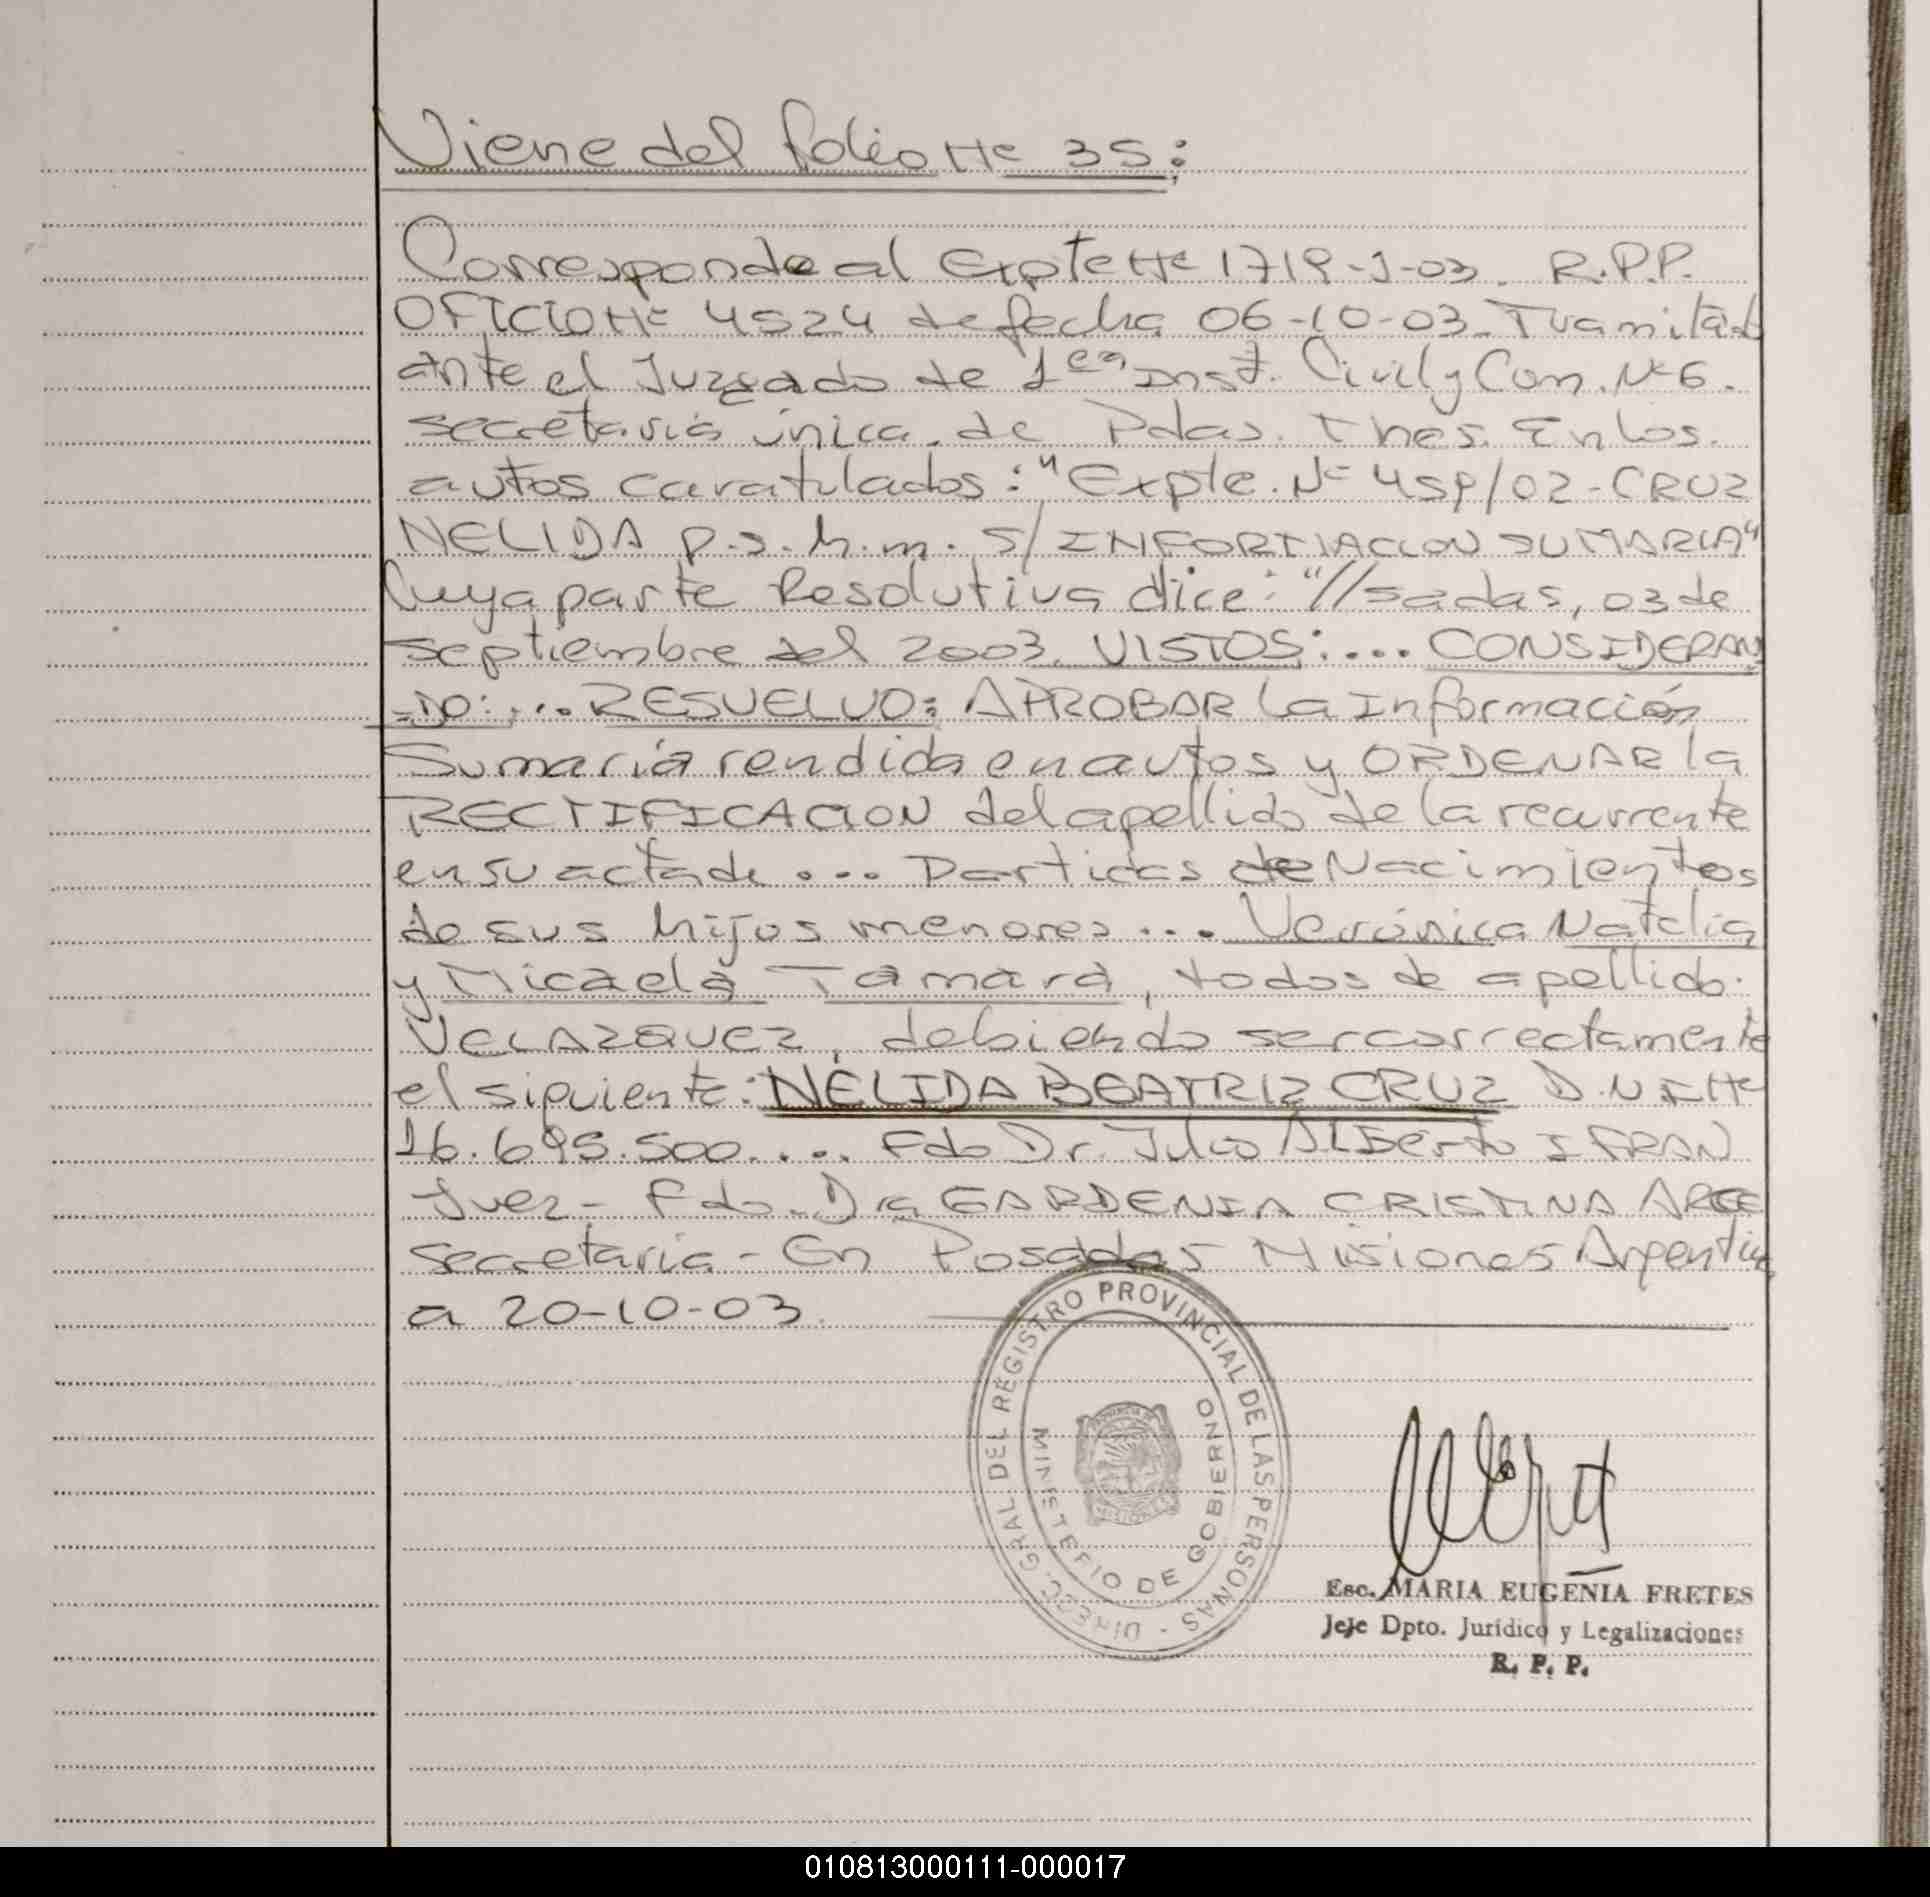 Viene del folio Nº 35:
Corresponde al Expte Nº 1719-J-03. R.P.P.
OFICIO Nº 4524 de fecha 06-10-03. Tramitado
ante el Juzgado de 1era Inst. Civil y Com. Nº 6.
secretaria única. de Pdas. Mnes. En los.
autos caratulados: "Expte. Nº 459/02-CRUZ
NELIDA p.s.h.m. S/INFORMACION SUMARIA"
Cuya parte Resolutiva dice: "//sadas, 03 de
septiembre del 2003. VISTOS:.... CONSIDERAN
-DO:.... RESUELVO: APROBAR la Información
Sumaria rendida en autos y ORDENAR la
RECTIFICACION del apellido de la recurrente
en su acta de ... Partidas de Nacimientos
de sus hijos menores .... Verónica Natalia
y Micaela Tamara, todos de apellido.
VELAZQUEZ, debiendo ser correctamente
el siguiente: NELIDA BEATRIZ CRUZ D.N.I Nº
16.695.500.... Fdo Dr. Julio Alberto IFRAN
Juez- Fdo. Dra GARDENIA CRISTINA ARCE
secretaria- En Posadas Misiones Argentina
a 20-10-03.
DIRECC. GRAL DEL REGISTRO PROVINCIAL DE LAS PERSONAS -
MINISTERIO DE GOBIERNO
Esc. MARIA EUGENIA FRETES
Jefe Dpto. Jurídico y Legalizaciones
R. P. P.
010813000111-000017